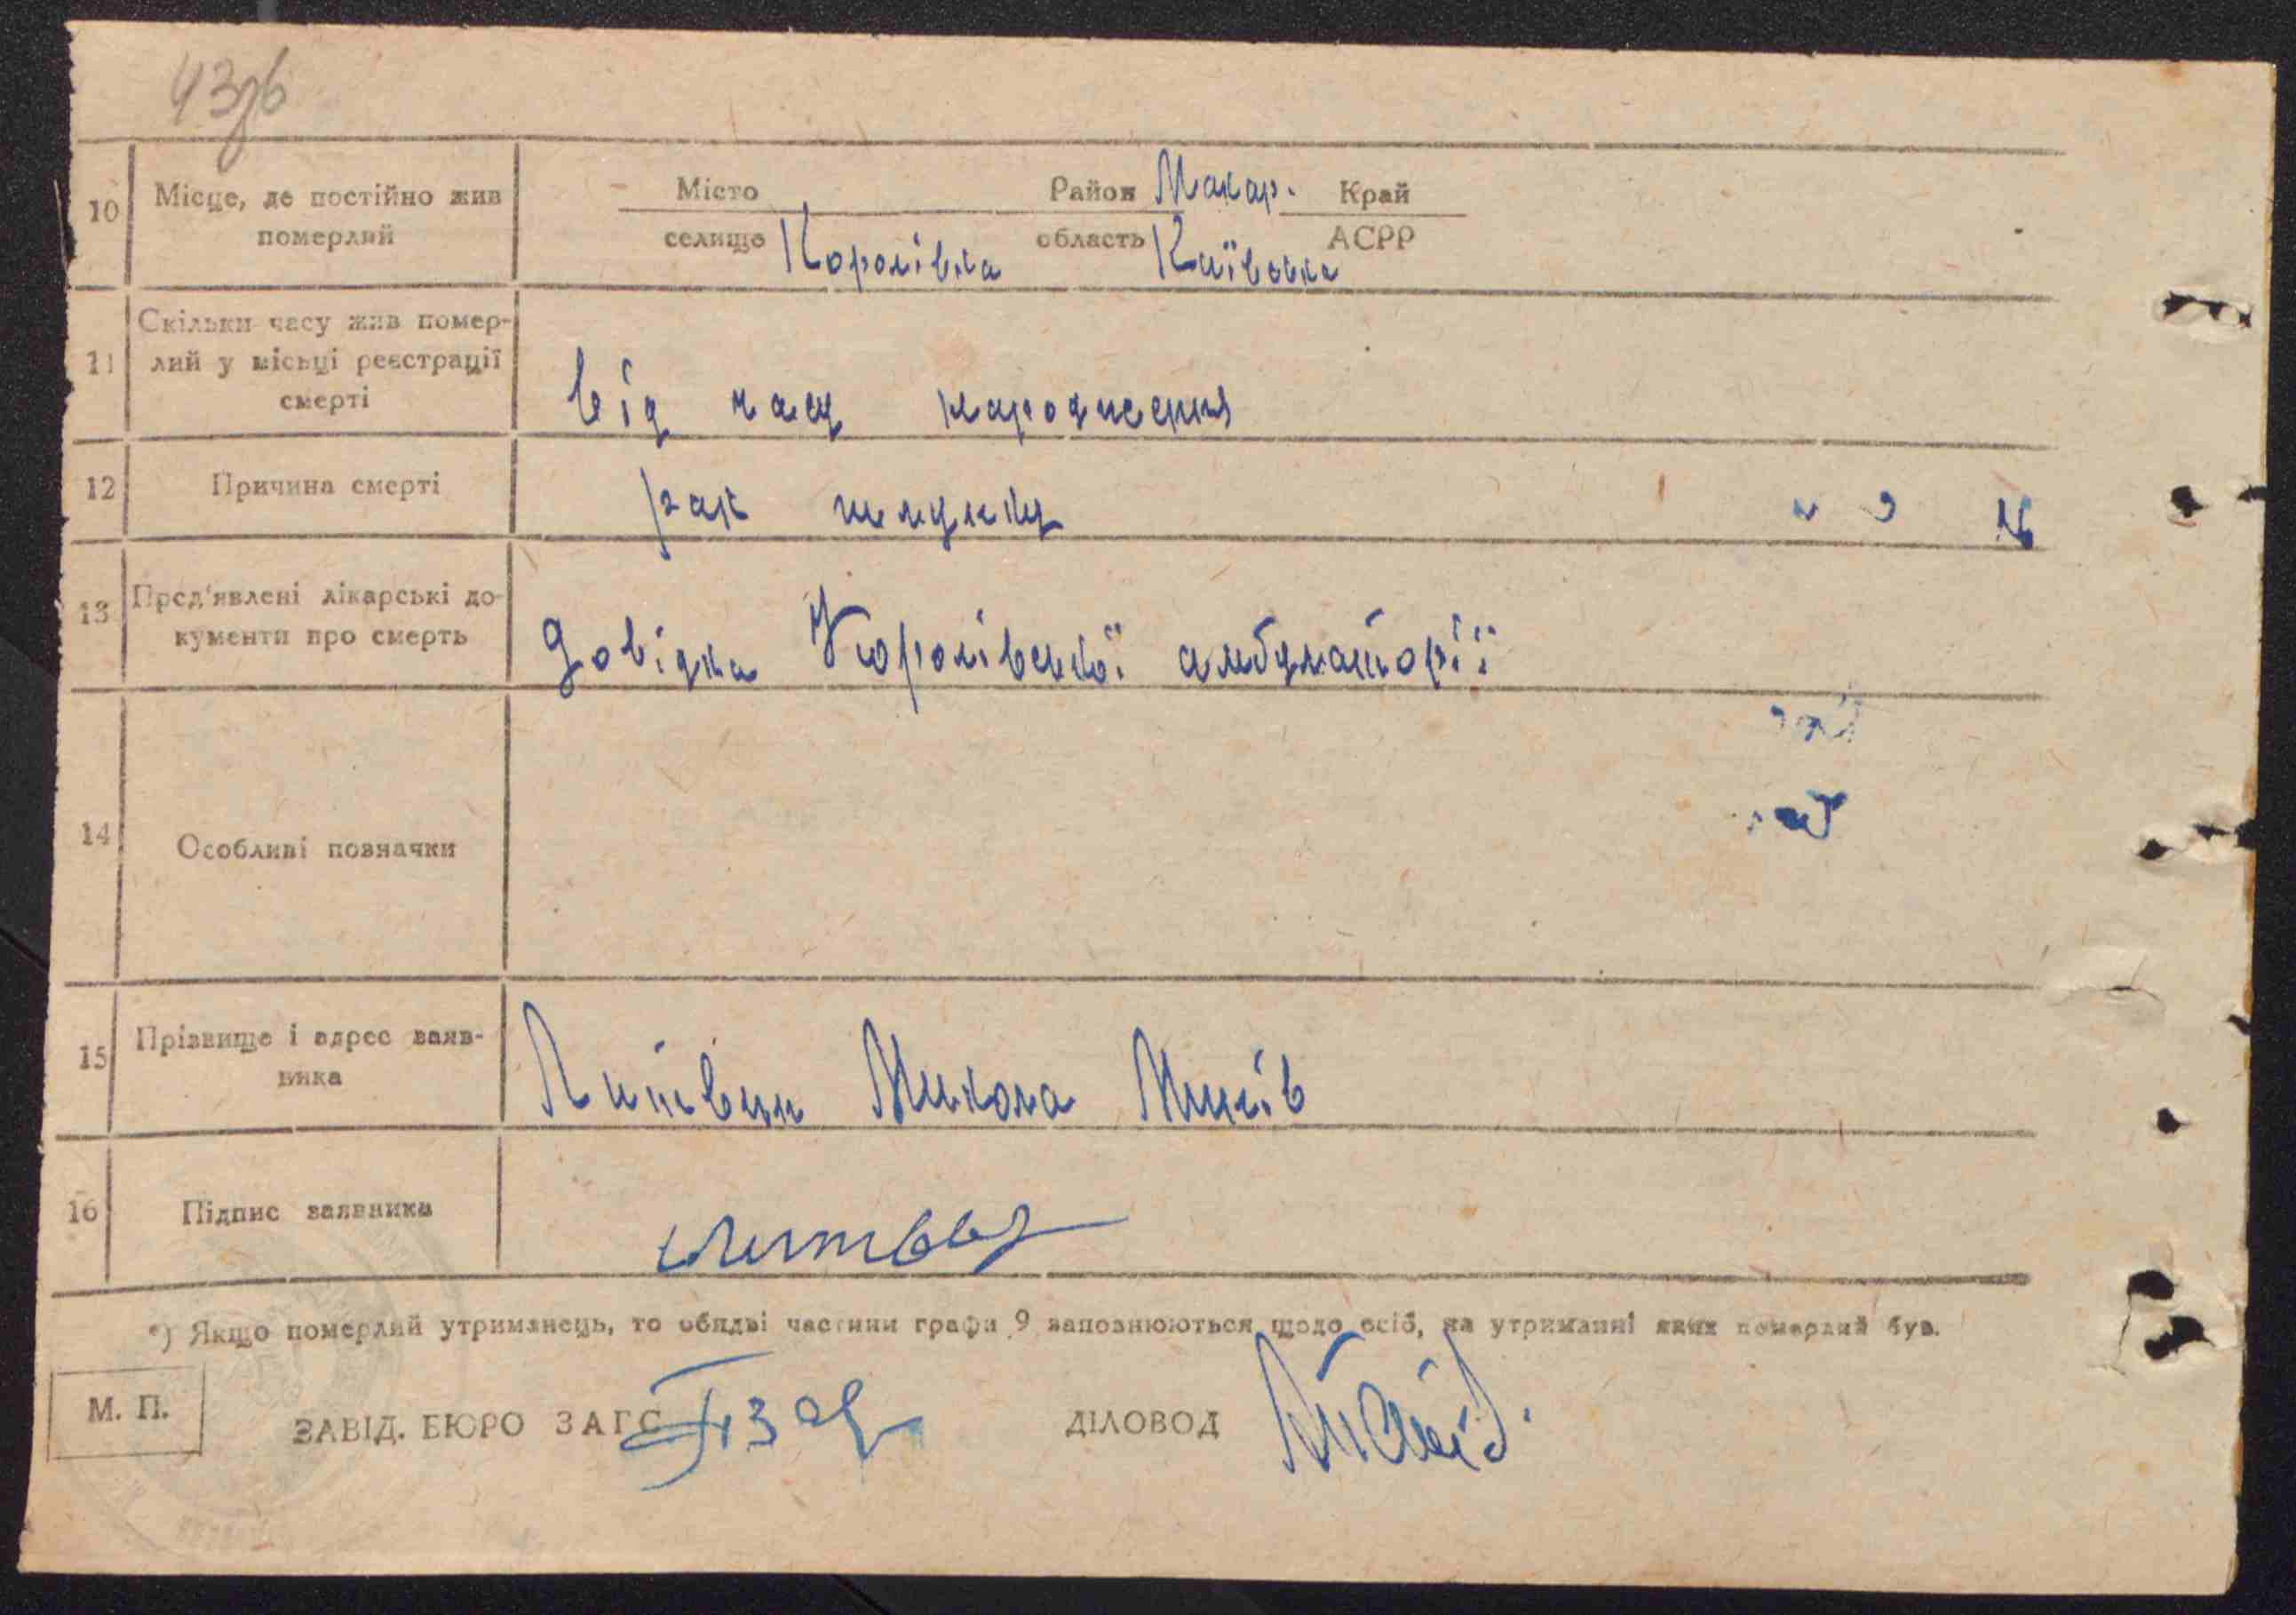 43зв
10 Місце, де постійно жив Місто Район Макар. Край
померлий селище Королівка область Київська АСРР
Скільки часу жив помер-
11 лий у місьці реєстрації
смерті від часу народження
12 Причина смерті рак шлунку
13 Пред'явлені лікарські до-
кументи про смерть Довідка Королівської амбулаторії
14 Особливі позначки
15 Прізвище і адрес заяв-
ника Литвин Микола
16 Підпис заявника
*) Якщо померлий утриманець, то обидві частини графи 9 заповнюються щодо осіб, на утриманні яких померлий був.
М. П.
ЗАВІД. БЮРО ЗАГС ДІЛОВОД